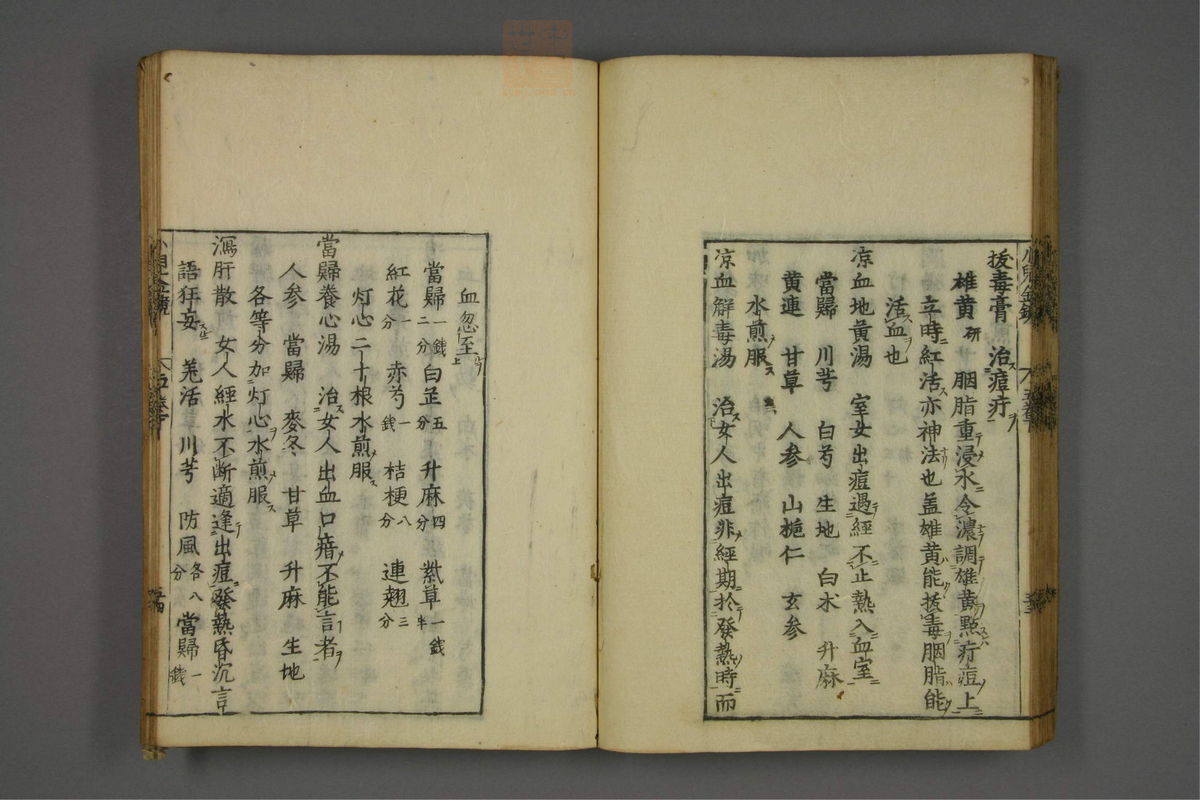 拔毒膏 治痘疔
雄黄 研 胭脂重浸水令濃調雄黄點疔痘上
立時紅活亦神法也盖雄黄能拔毒胭脂能
活血也
凉血地黄湯 室女出痘遇經不止熱入血室
當歸 川芎 白芍 生地 白朮 升麻
黄連 甘草 人参 山梔仁 玄参
水煎服
凉血解毒湯 治女人出痘非經期於發熱時而
血忽至
當歸 一錢二分 白芷 五分 升麻 四分 紫草 一錢半
紅花 一分 赤芍 一錢 桔梗 八分 連翹 三分
灯心二十根水煎服
當歸養心湯 治女人出血口瘖不能言者
人参 當歸 麥冬 甘草 升麻 生地
各等分加灯心水煎服
瀉肝散 女人經水不断適逢出痘發熱昏沉言
語狂妄 羌活 川芎 防風 各八分 當歸 一錢